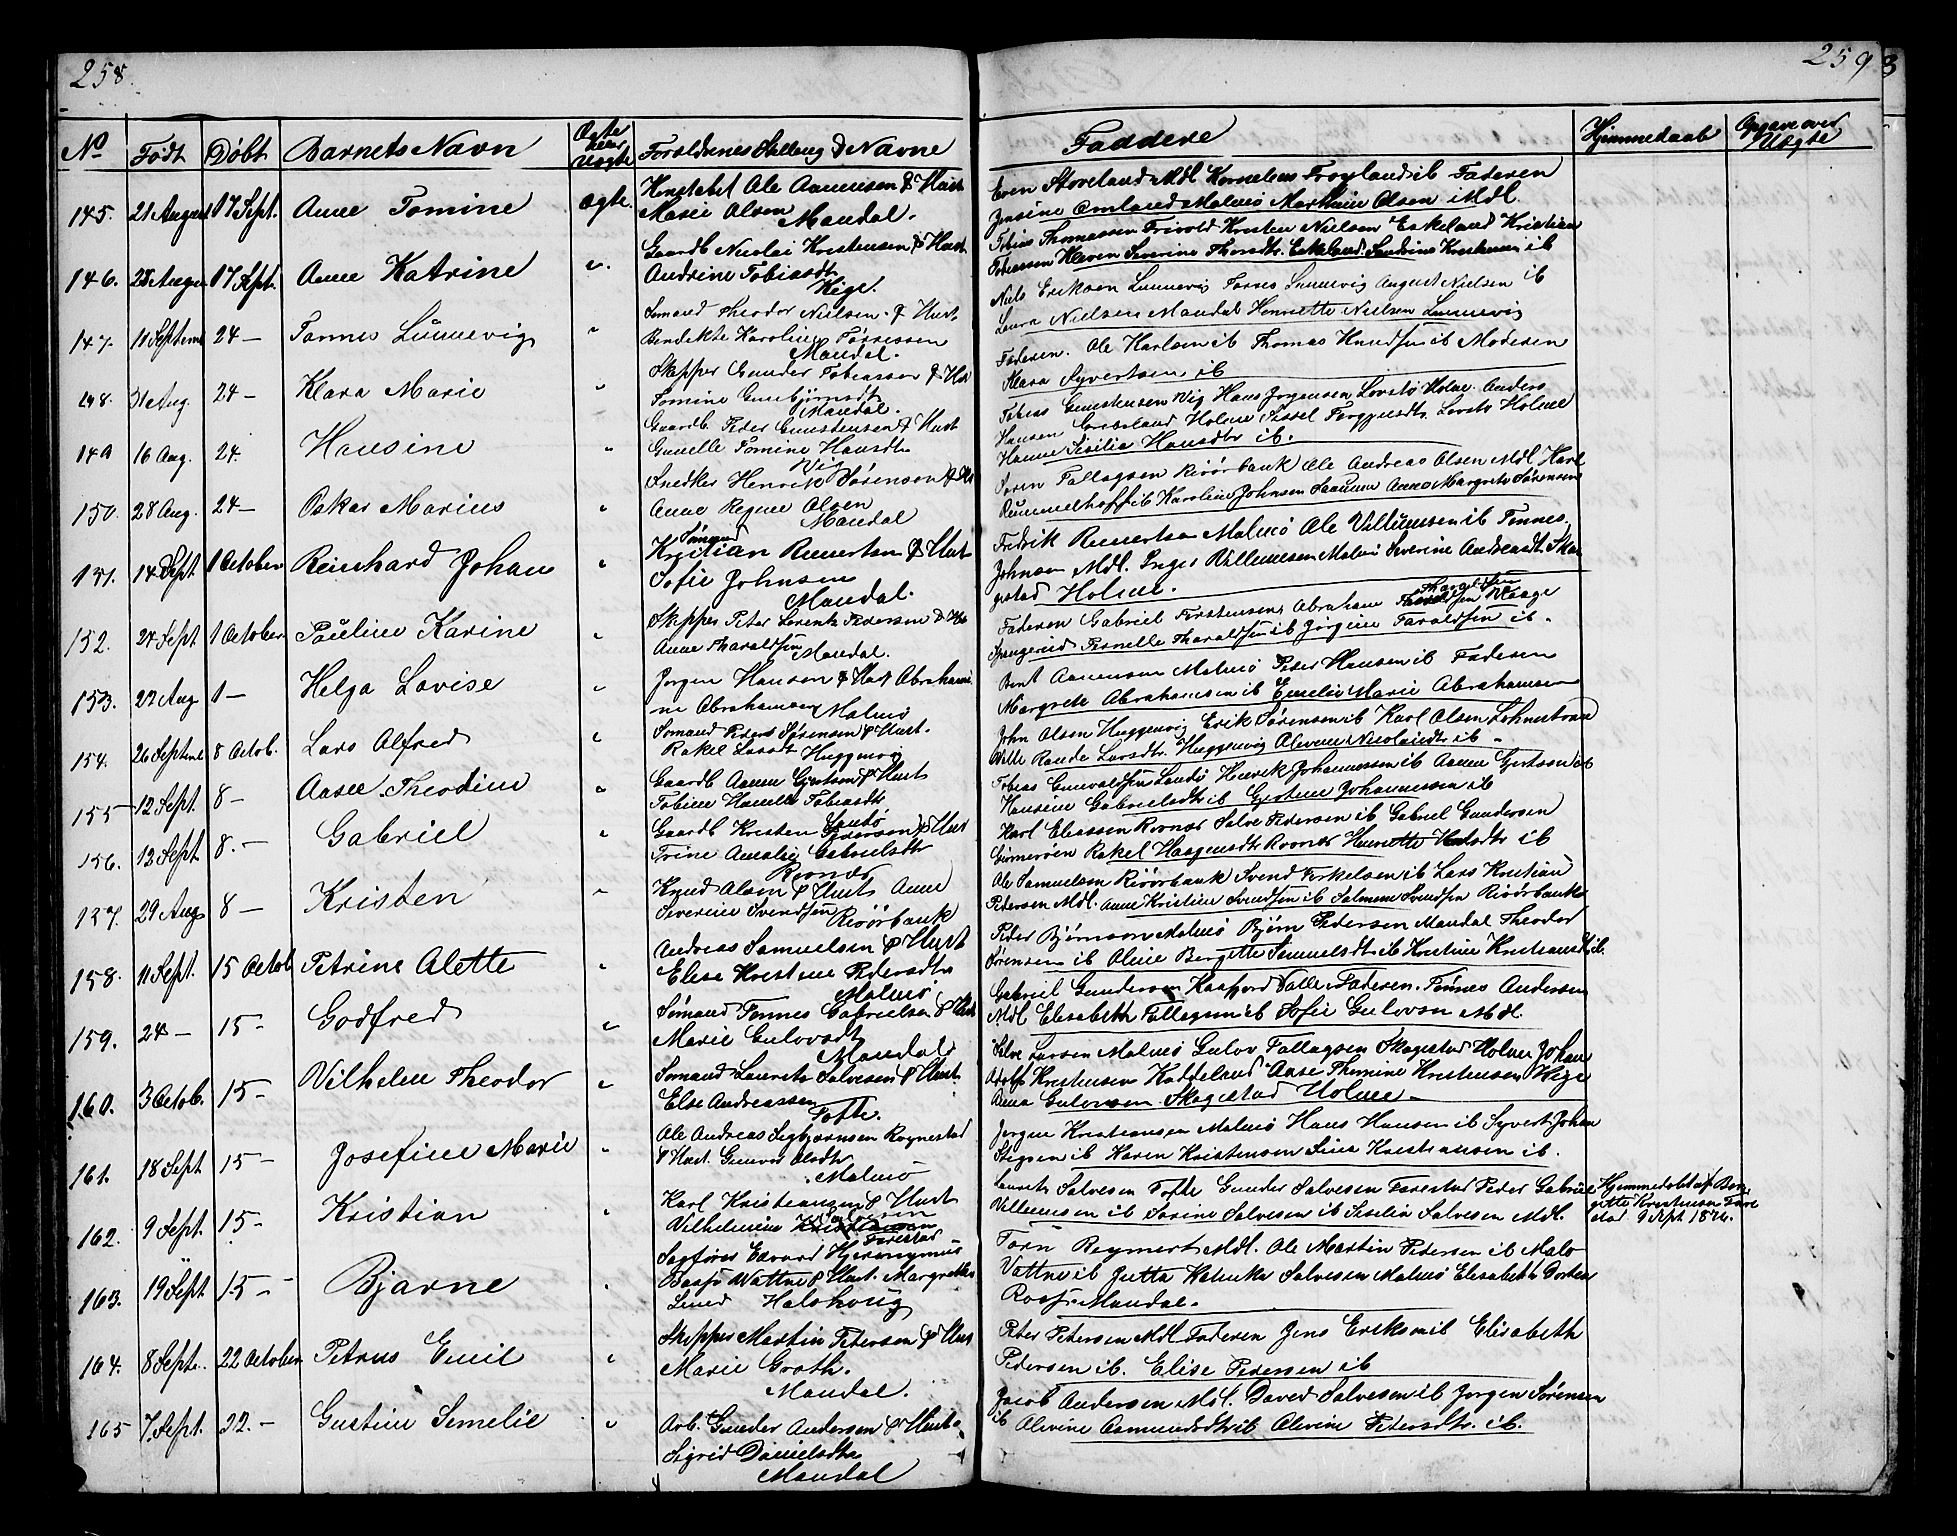 258.
259
No Født Døbt Barnets Navn Ægte eller Uægte Forældrenes Stilling & Navne
145. 21 August 17 Sept. Anne Tomine ægte. Ole Aanensen & Hust
Marie Olsen Mandal.
146. 28 Augu 17 Sept. Anne Katrine Gaardb Nicolai Kristensen & Hust
Andrine Tobiasdt
Vige.
147. 11 Septemb 24 – Tønnes Sømand Theodor Nielsen & Hust.
Bendikte Karoline Tørresen
Mandal.
148. 31 Aug. 24 – Klara Marie Skipper Gunder Tobiassen & Hus
Tomine Gunbjørnsdt
Mandal.
149 16 Aug. 24. Hansine Gaardb. Peder Gunstensen & Hust
Gunelle Tomine Hansdtr
Vig
150. 28 Aug. 24 – Oskar Marius Snedker Henrik Sørenson & Hu
Anne Regine Olsen
Mandal
151. 14 Sept 1 October Reinhard Johan Sømand
Kristian Reinertsen & Hust
Sofie Johnsen
Mandal.
152. 24 Sept 1 October Pauline Karine Skipper Peter Lorentz Pedersen & Hu
Anne Tharaldsen Mandal.
153. 22 Aug 1 – Helga Lovise Jørgen Hansen & Hust Abrahami
ne Abrahamsen Malmø
154. 26 Septemb 8 Octob. Lars Alfred Sømand Peder Sørensen & Hust.
Rakel Larsdt Huggenvig
155 12 Sept. 8 – Aasee Theodine Gaardb Aanen Gjertsen & Hust
Tobine Tobiasdtr
Sandø
156. 12 Sept 8. – Gabriel Gaardb Kristen Pederson & Hust
Trine Amalie Gabrielsdtr
157. 29 Aug 8 – Kristen Knud Olsen & Hust Anne
Severine Svendsen
Risøbank
158. 11 Sept. 15 Octob Petrine Alette Andreas Samuelsen & Hust
Elise Kristine Pedersdtr
Malmø
159. 24 – 15 – Godfred Sømand Tønnes Gabrielsen & Hust
Marie Gulovsdt
Mandal
160. 3 Octob. 15 – Vilhelm Theodor Sømand Laurets Salvesen & Hust.
Else Andreassen
Tofte.
161. 18 Sept 15 – Josefine Marie Ole Andreas Sigbjørnsen Rognestad
& Hust. Gunvor Olsdtr
Malmø
162. 9 Sept. 15 – Kristian Karl Kristiansen & Hust
Vilhelmine
Farestad
163. 19 Sept 15 – Bjarne Sagfører Edvard Hjeronymus
Vattne & Hust. Margrethe
Halskoug
164. 8 Sept. 22 October Petrus Emil Skipper Martin Petersen & Hust
Marie Groth.
Mandal.
165 7. Sept. 22. – Gustine Semelie Arb. Gunder Andersen & Hust.
Sigrid Danielsdtr
Mandal
Faddere Hjemmedaab Opgave over Uægte
Even Støveland Mdl Kornelius Frøyland ib Faderen
Jensine Omland Malmø Marthine Olsen i Mdl.
Tobias Thomassen Frivold Kristen Nielsen Eskeland Kristian
Tobiassen Severine Eskeland ib
Niels Eriksen August Nielsen ib
Laura Nielsen Mandal Henriette Nielsen
Faderen. Ole Karlsen ib Thomas Knudsen ib Moderen
Klara Syvertsen ib
Tobias Gunstensen Vig Hans Jørgensen Holme. Anders
Hansen Holme Sissel Holme
Hanne Sesilia Hansdtr ib.
Søren Fallagsen Risøbank Ole Andreas Olsen Mdl Karl
Rummelhoff ib Karoline Johnsen Anne Margrete Sørensen
Fredrik Reinertsen Malmø Ole Villumsen ib Tønnes
Johnsen Mdl. Inger Villumsen Malmø Severine Andreasdt. Ska
gestad Holme.
Faderen Gabriel Torstensen, Abraham Tharaldsen Waage
Pernille Tharaldsen ib Jørgine Taraldsen ib.
Bent Aanensen Malmø Peder Hansen ib Faderen
Margrete Abrahamsen ib Emelie Marie Abrahamsen
John Olsen Huggenvig Erik Sørensen ib Karl Olsen
Larsdtr. Huggenvig Nicolaidtr ib –
Tobias Gunvaldsen Sandø Henrik Johannessen ib Aanen Gjertsen ib
Hansine Gabrielsdtr ib Gjertine Johannessen ib
Karl Eliassen Salve Pedersen ib Gabriel Gundersen
Rakel Haagensdtr Henriette ib
Ole Samuelsen Risøbank Svend Terkelsen ib Lars Kristian
Pedersen Mdl. Anne Kristine Svendsen ib Salmine Svendsen Risøbank
Peder Bjørnson Malmø Bjørn Pedersen Mandal Theodor
Sørensen ib Oline Bergitte Samuelsdt ib Kristine Kristiansdt ib.
Gabriel Gundersen Kaafjord Valle. Faderen. Tønnes Andersen
Mdl Elisabeth Fallagsen ib Sofie Gulovsen Mdl.
Salve Larsen Malmø Gulov Fallagsen Skagestad Holme Johan
Adolf Kristensen Kaddeland Aase Thomine Kristensen Vige
Anna Gulovsen Skagestad Holme –
Jørgen Kristiansen Malmø Hans Hansen ib Syvert Johan
ib Karen Kristensen Sina Kristiansen ib.
Laurets Salvesen Tofte Gunder Salvesen Farestad Peder Gabriel
Villumsen ib Sorine Salvesen ib Sesilia Salvesen Mdl.
Hjemmedøbt af Ber
gitte Kristensen Fare
stad 9 Sept 1876.
Reymert Mdl. Ole Martin Pedersen ib
Vattne ib Jutta Katinka Salvesen Malmø Elisabeth
Mandal.
Peter Petersen Mdl Faderen Jens Eriksen ib Elisabeth
Pedersen ib. Elise Pedersen ib
Jacob Andersen Mdl. David Salvesen ib Jørgen Sørensen
ib Olivine Osmundsdtr ib Olevine Petersdtr. ib.